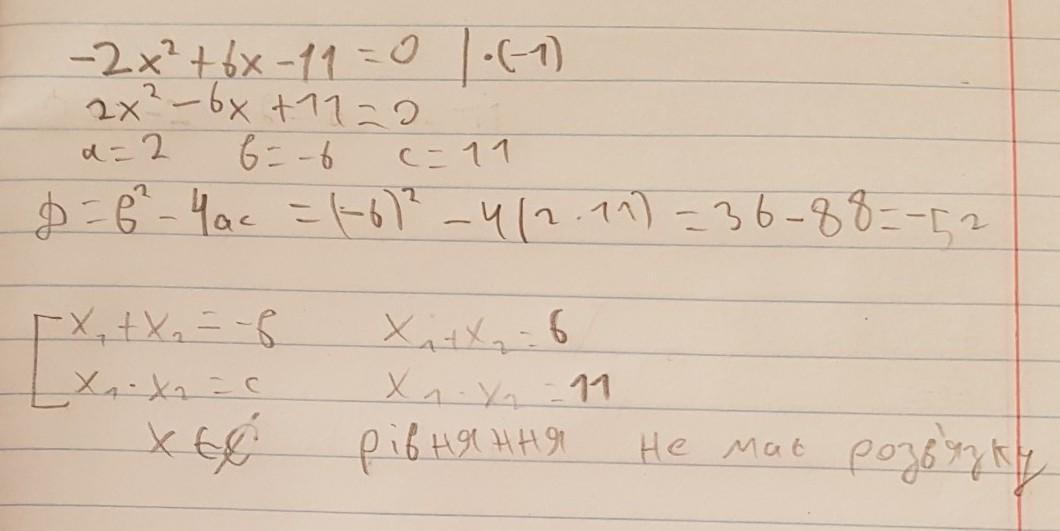 -2x² + 6x - 11 = 0 | · (-1)
2x² - 6x + 11 = 0
a = 2 b = -6 c = 11
D = b² - 4ac = (-6)² - 4(2 · 11) = 36 - 88 = -52
x₁ + x₂ = -b x₁ + x₂ = 6
x₁ · x₂ = c x₁ · x₂ = 11
x ∈ рівняння не має розв'язку